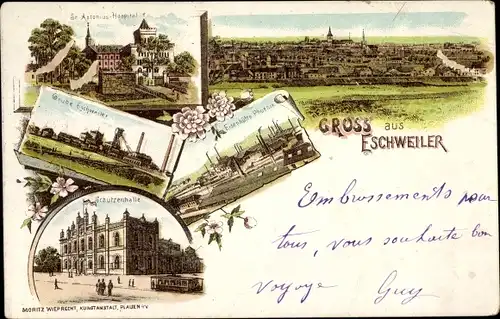 St. Antonius-Hospital
Grube Eschweiler
Eisenhütte Phoenix
GRUSS aus
ESCHWEILER
Schützenhalle
Embrassements pour
tous, vous souhaite bon
voyage Guy
MORITZ WIEPRECHT, KUNSTANSTALT, PLAUEN i/V